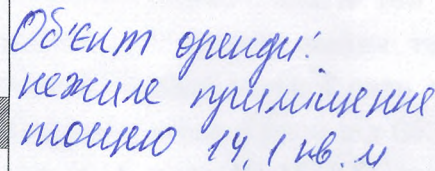 Об'єкт оренди:
нежиле приміщення
площею 14,1 кв.м